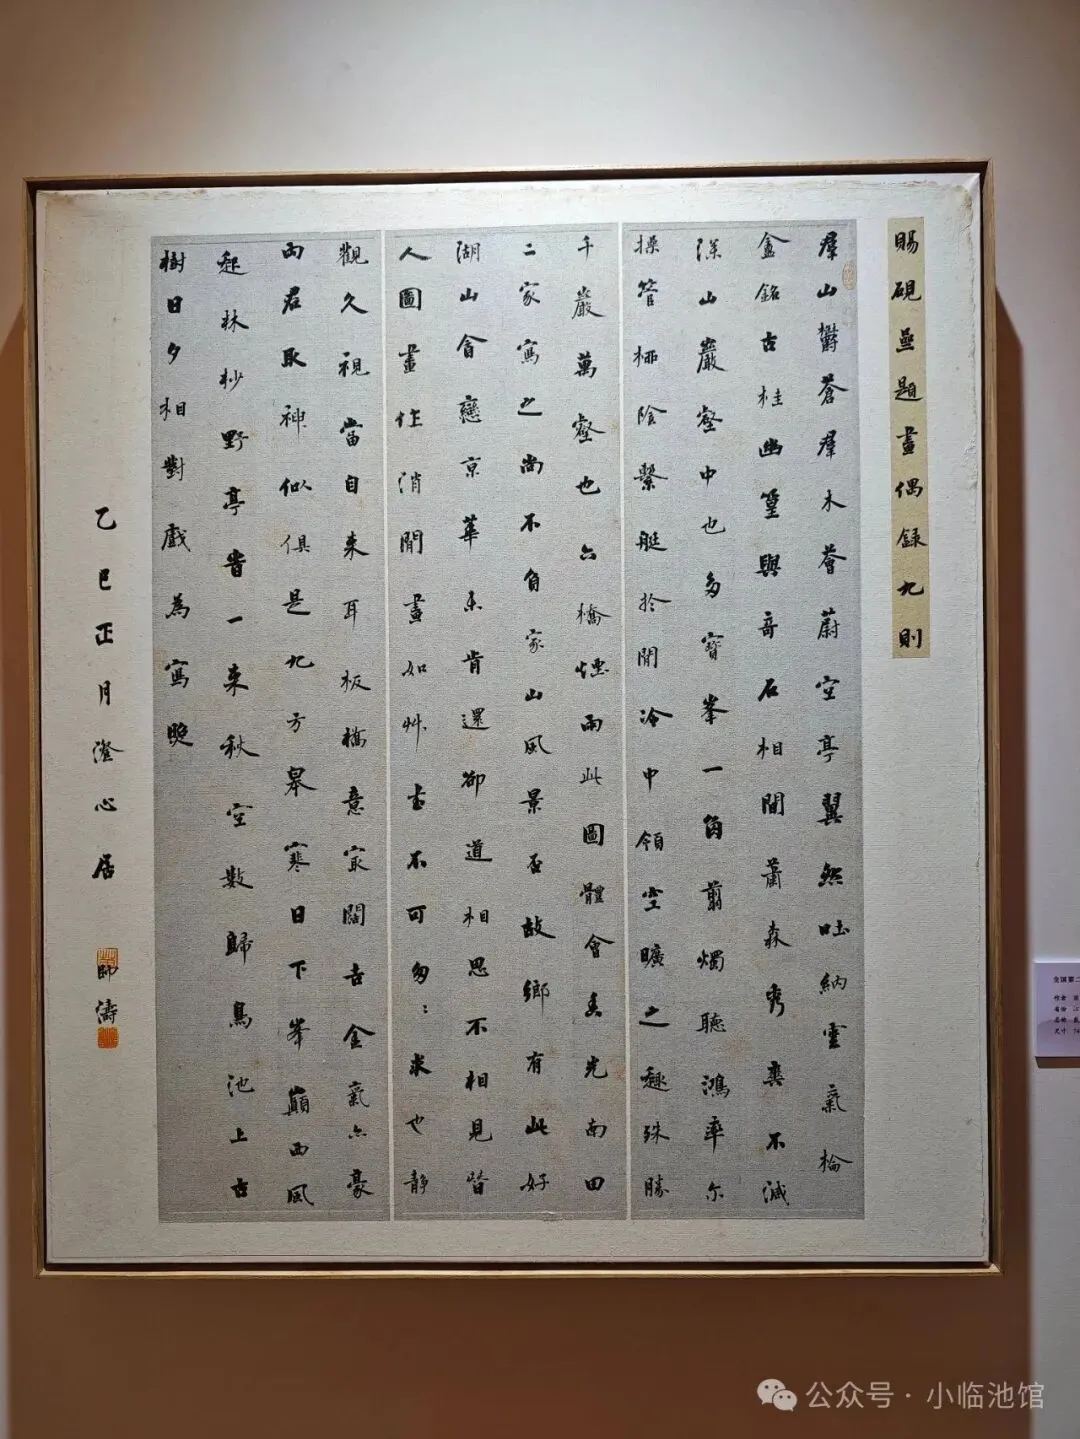 賜硯齋題畫偶錄九則
羣山鬱蒼羣木薈蔚空亭翼然吐納靈氣榆
盦銘古桂幽篁與奇石相間蕭森秀爽不減
深山巖壑中也多寶峯一角剪燭聽鴻率尔
操管柳陰繫艇於閒冷中領空曠之趣殊勝
千巖萬壑也六橋煙雨此圖體會香光南田
二家寫之尚不負家山風景否故鄉有此好
湖山貪戀京華未肯還卻道相思不相見昔
人圖畫作消閒畫如艸書不可匆：求也靜
觀久視當自来耳板橋意寂闊吉金氣亦豪
兩君取神似俱是九方皋寒日下峯巔西風
起林杪野亭昔一来秋空數歸鳥池上古
樹日夕相對戲為寫照
乙巳正月澄心居
帥濤
公众号 · 小临池馆